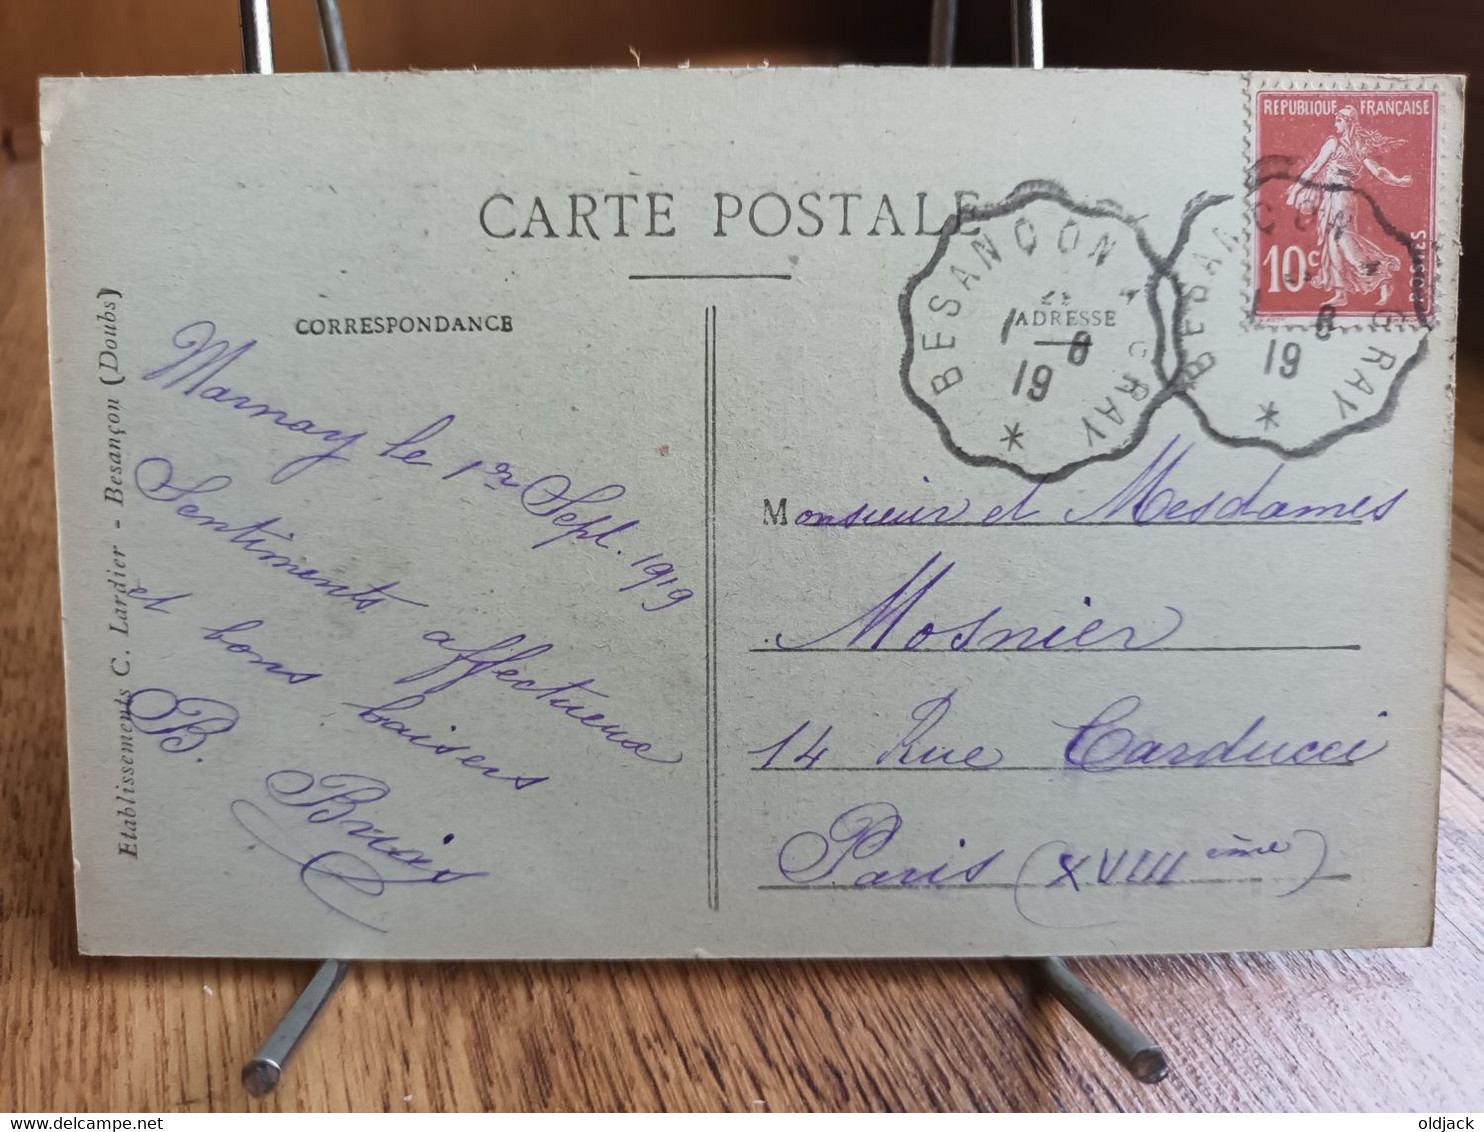 CARTE POSTALE
CORRESPONDANCE
ADRESSE
Etablissements C. Lardier - Besançon (Doubs)
REPUBLIQUE FRANÇAISE
10c
POSTES
BESANÇON A GRAY
1 8
19
BESANÇON A GRAY
8
19
Marnay le 1er Sept. 1919
Sentiments affectueux
et bons baisers
B. Bruäs
Monsieur et Mesdames
Mosnier
14 Rue Carducci
Paris (XVIIIième)
oldjack